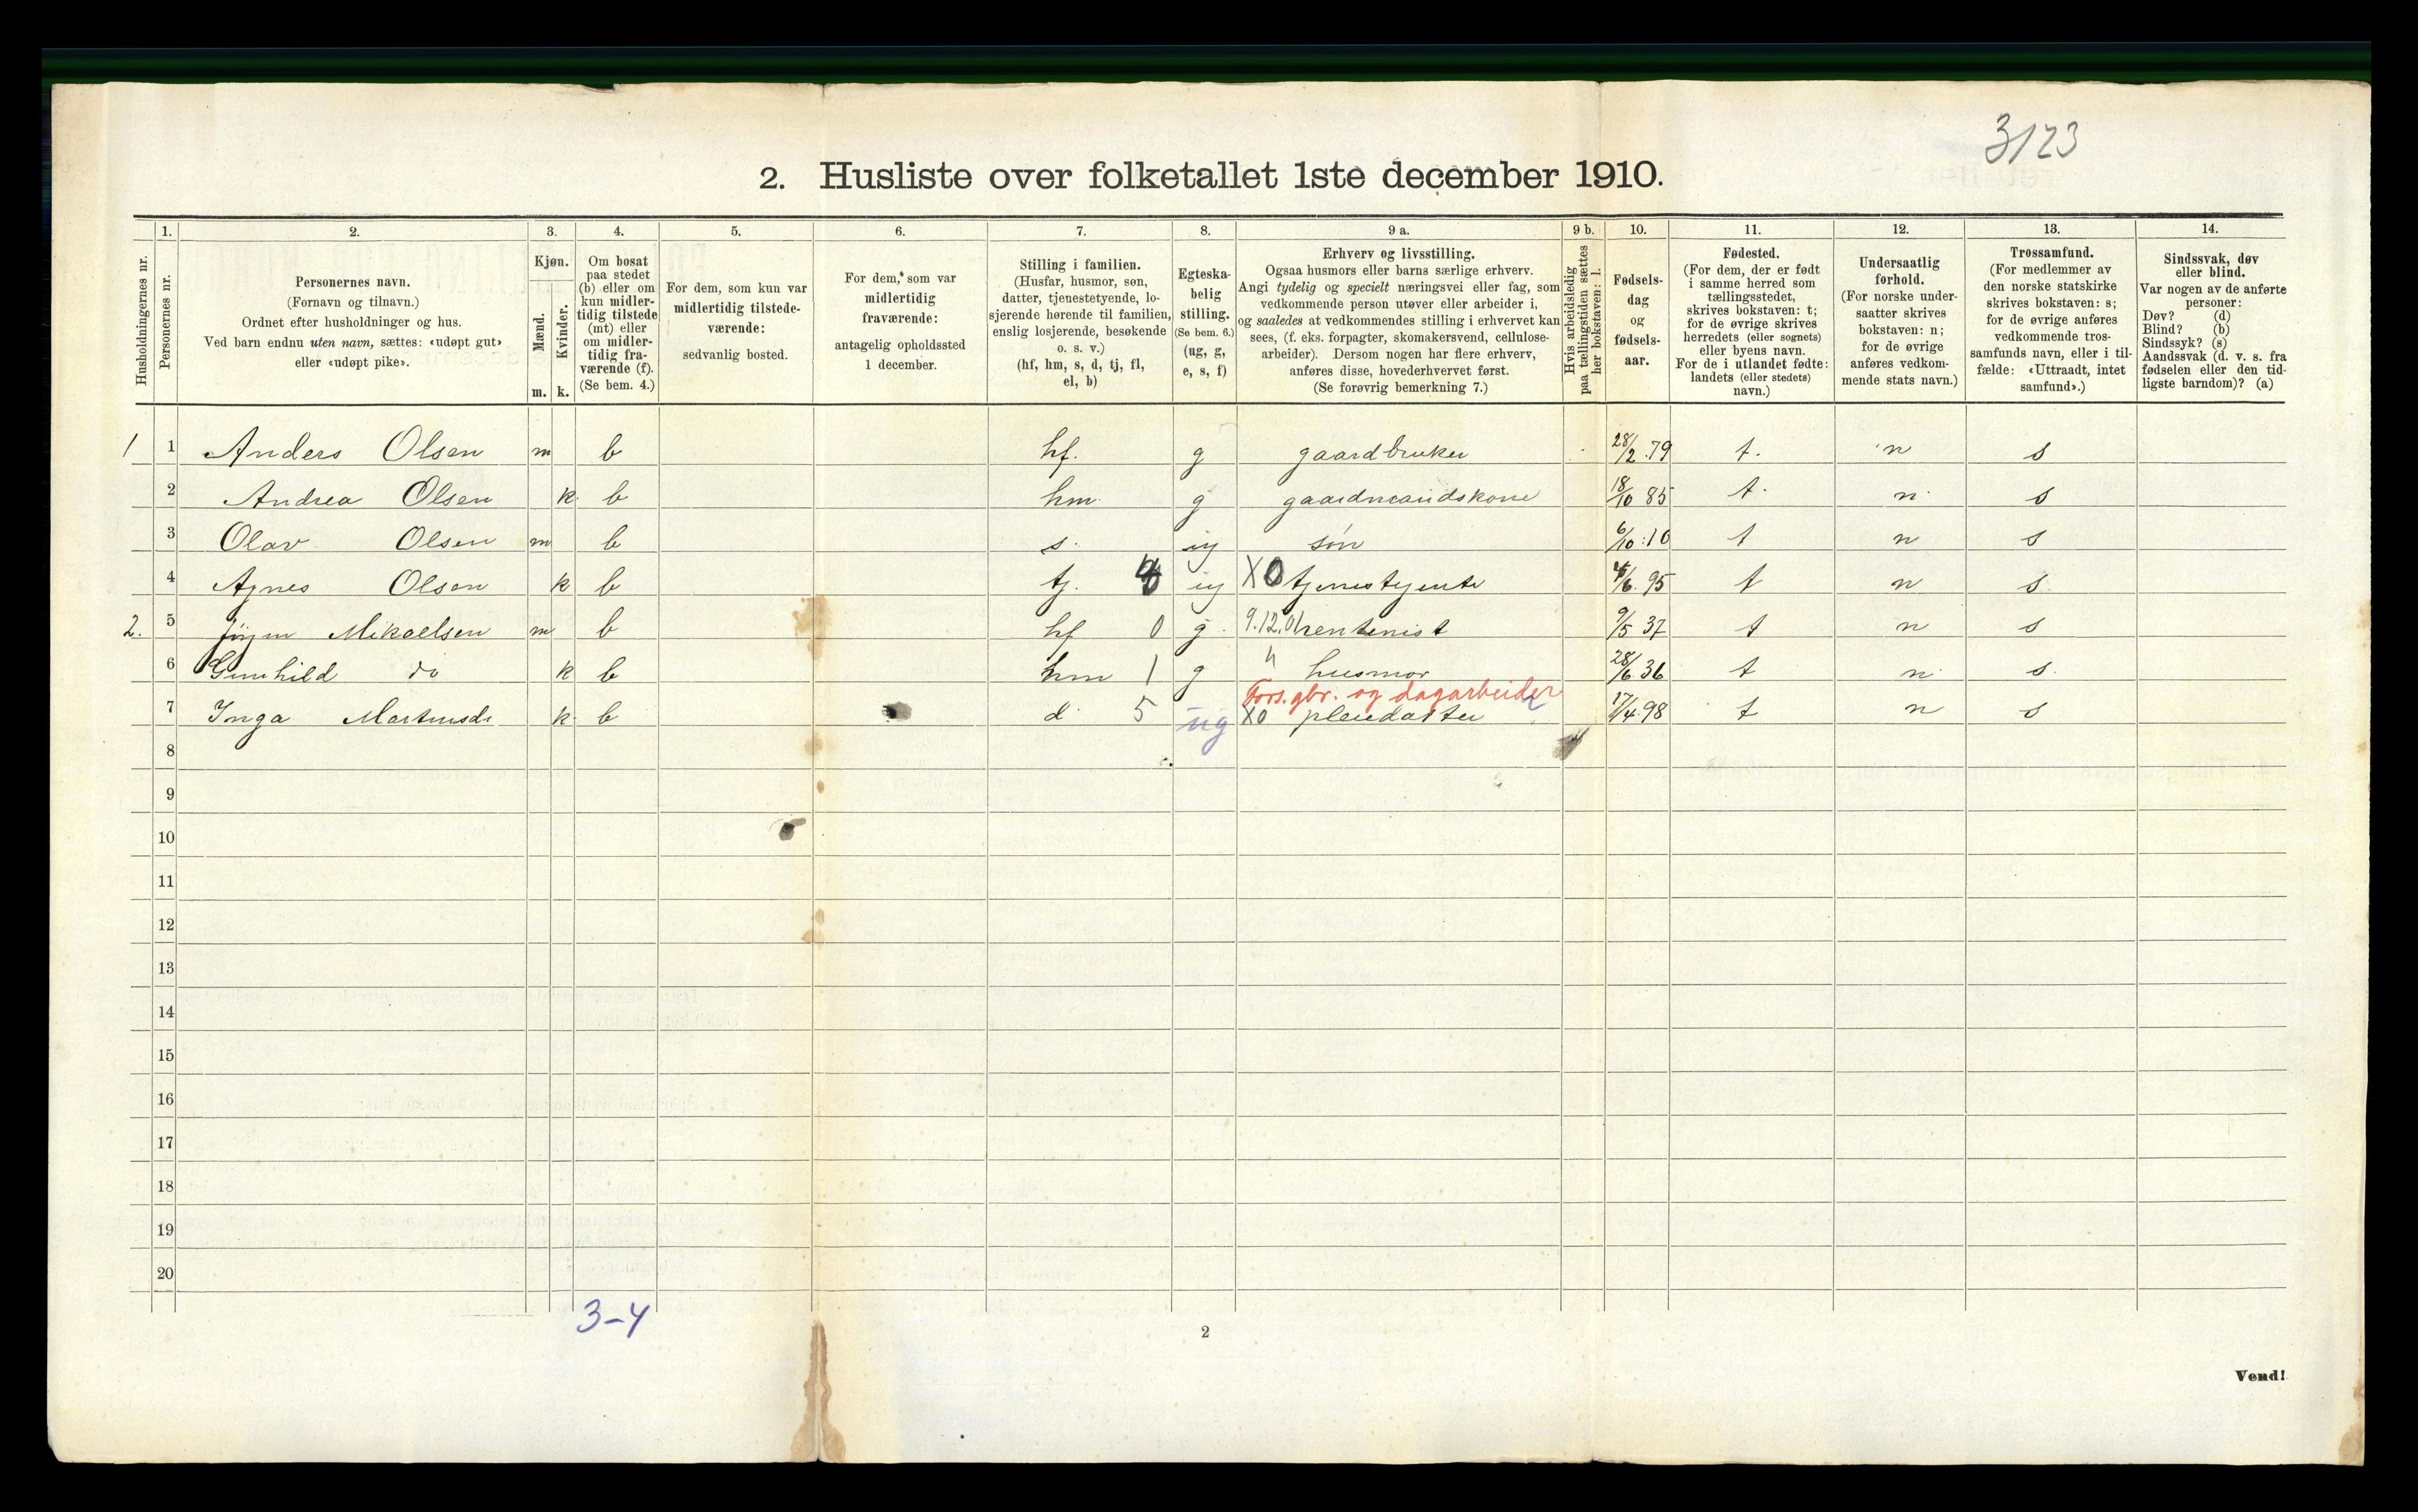 3123
2. Husliste over folketallet 1ste december 1910.
Husholdningernes nr.
1.
Personernes nr.
2.
Personernes navn.
(Fornavn og tilnavn.)
Ordnet efter husholdninger og hus.
Ved barn endnu uten navn, sættes: «udøpt gut»
eller «udøpt pike».
3.
Kjøn.
Mænd.
Kvinder.
m. k.
4.
Om bosat
paa stedet
(b) eller om
kun midler-
tidig tilstede
(mt) eller
om midler-
tidig fra-
værende (f).
(Se bem. 4.)
5.
For dem, som kun var
midlertidig tilstede-
værende:
sedvanlig bosted.
6.
For dem, som var
midlertidig
fraværende:
antagelig opholdssted
1 december.
7.
Stilling i familien.
(Husfar, husmor, søn,
datter, tjenestetyende, lo-
sjerende hørende til familien,
enslig losjerende, besøkende
o. s. v.)
(hf, hm, s, d, tj, fl,
el, b)
8.
Egteska-
belig
stilling.
(Se bem. 6.)
(ug, g,
e, s, f)
9 a.
Erhverv og livsstilling.
Ogsaa husmors eller barns særlige erhverv.
Angi tydelig og specielt næringsvei eller fag, som
vedkommende person utøver eller arbeider i,
og saaledes at vedkommendes stilling i erhvervet kan
sees, (f. eks. forpagter, skomakersvend, cellulose-
arbeider). Dersom nogen har flere erhverv,
anføres disse, hovederhvervet først.
(Se forøvrig bemerkning 7.)
9 b.
Hvis arbeidsledig
paa tællingstiden sættes
her bokstaven: l.
10.
Fødsels-
dag
og
fødsels-
aar.
11.
Fødested.
(For dem, der er født
i samme herred som
tællingsstedet,
skrives bokstaven: t;
for de øvrige skrives
herredets (eller sognets)
eller byens navn.
For de i utlandet fødte:
landets (eller stedets)
navn.)
12.
Undersaatlig
forhold.
(For norske under-
saatter skrives
bokstaven: n;
for de øvrige
anføres vedkom-
mende stats navn.)
13.
Trossamfund.
(For medlemmer av
den norske statskirke
skrives bokstaven: s;
for de øvrige anføres
vedkommende tros-
samfunds navn, eller i til-
fælde: «Uttraadt, intet
samfund».)
14.
Sindssvak, døv
eller blind.
Var nogen av de anførte
personer:
Døv? (d)
Blind? (b)
Sindssyk? (s)
Aandssvak (d. v. s. fra
fødselen eller den tid-
ligste barndom)? (a)
1 1 Anders Olsen m b hf. g gaardbruker 28/2.79 t. n s
2 Andrea Olsen k. b hm. g gaardmandskone 18/10 85 t. n. s
3 Olav Olsen m b s. ug søn 6/10.10 t n s
4 Agnes Olsen k b tj. ug X0 tjenestejente 4/6.95 t n s
2. 5 Jörgen Mikaelsen m b hf 0 g. 9.12.01 rentenist 9/5 37 t n s
6 Gunhild do k b hm 1 g " husmor 28/6.36 t n. s.
Fors. gbr. og dagarbeider
7 Inga Martinsdr k. b d. 5 ug X0 pleiedatter 17/4.98 t n s
8
9
10
11
12
13
14
15
16
17
18
19
20
3-4
2
Vend!